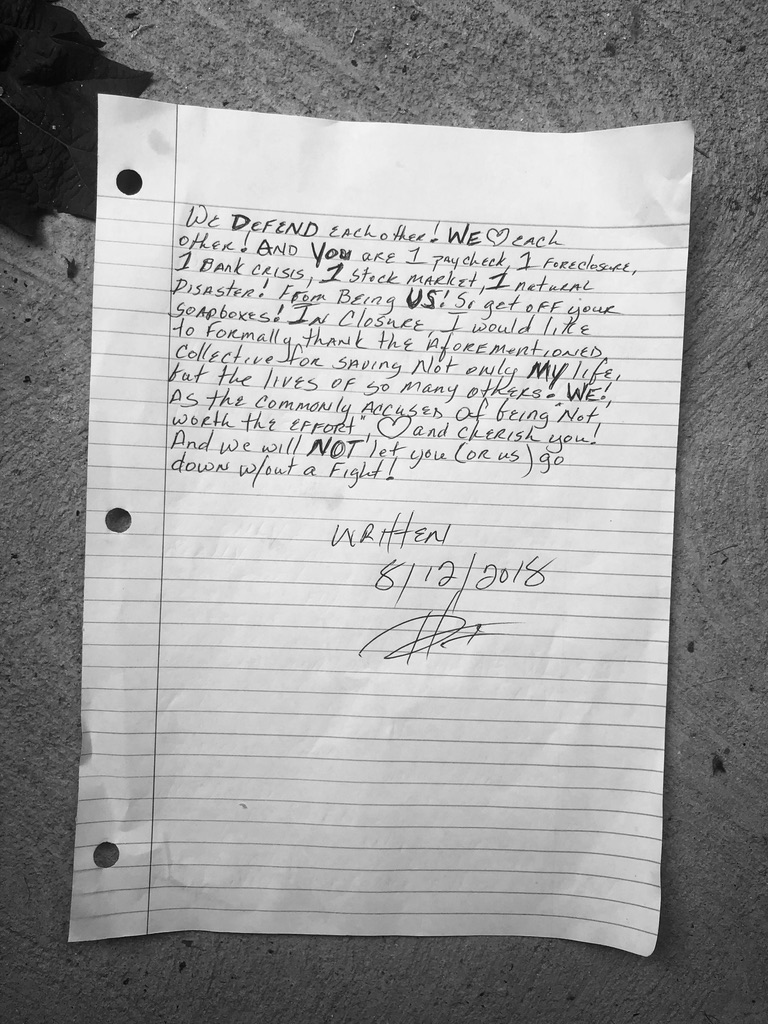 We DEFEND each other! WE ♡ each
other! AND You are 1 paycheck, 1 foreclosure,
1 BANK CRISIS, 1 stock market, 1 natural
DISASTER! From Being US! So get off your
soapboxes! IN Closure, I would like
to formally thank the aforementioned
collective for saving Not only MY life,
but the lives of so many others! WE!,
As the commonly Accused of being "Not
worth the effort", ♡ and cherish you!
And we will NOT let you (or us) go
down w/out a Fight!
WRITTEN
8/12/2018